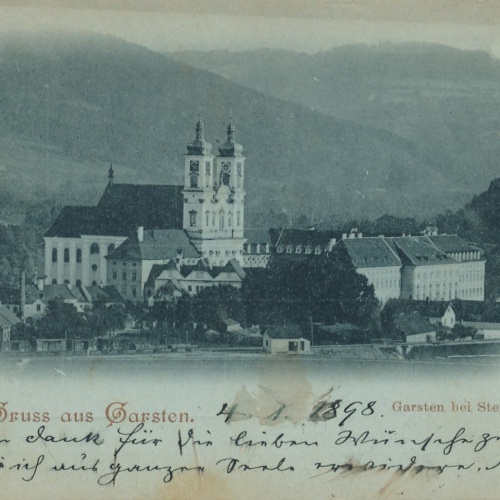 Gruss aus Garsten. 4. 1. 1898. Garsten bei Ste
dank für die lieben Wünsche z
ich aus ganzer Seele erwidere.